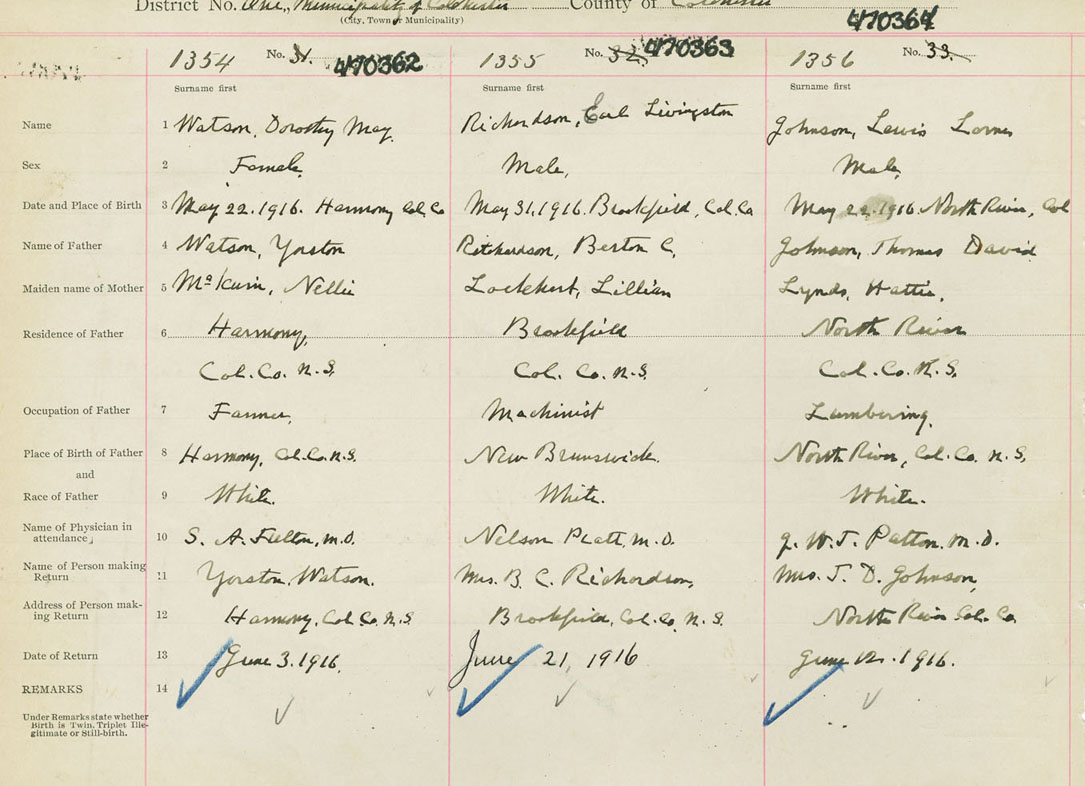 District No. One, Municipality of Colchester County of Colchester
(City, Town or Municipality)
470364
1354 No. 31. 470362 1355 No. 32. 470363 1356 No. 33.
Surname first Surname first Surname first
Name 1 Watson, Dorothy May. Richardson, Earl Livingston Johnson, Lewis Lorne
Sex 2 Female. Male, Male,
Date and Place of Birth 3 May 22. 1916. Harmony Col. Co May 31, 1916. Brookfield, Col. Co May 22. 1916. North River, Col
Name of Father 4 Watson, Yorston Richardson, Berton C, Johnson, Thomas David
Maiden name of Mother 5 Nellie Lockhart, Lillian Lynds, Hattie,
Residence of Father 6 Harmony, Brookfield North River
Col. Co. N.S. Col. Co. N.S. Col. Co. N.S,
Occupation of Father 7 Farmer, Machinist Lumbering,
Place of Birth of Father 8 Harmony, Col. Co. N.S. New Brunswick. North River, Col. Co. N.S,
and
Race of Father 9 White. White. White.
Name of Physician in
attendance 10 S. A. Fulton, M.D. Nelson Pratt, M.D. W.T. Patton, M.D.
Name of Person making
Return 11 Yorston Watson. Mrs. B. C. Richardson, Mrs. T. D. Johnson,
Address of Person mak-
ing Return 12 Harmony, Col. Co. N.S. Brookfield, Col. Co. N.S. North River Col. Co.
Date of Return 13 June 3. 1916. June 21, 1916 June 12. 1916.
REMARKS 14
Under Remarks state whether
Birth is Twin, Triplet Ille-
gitimate or Still-birth.